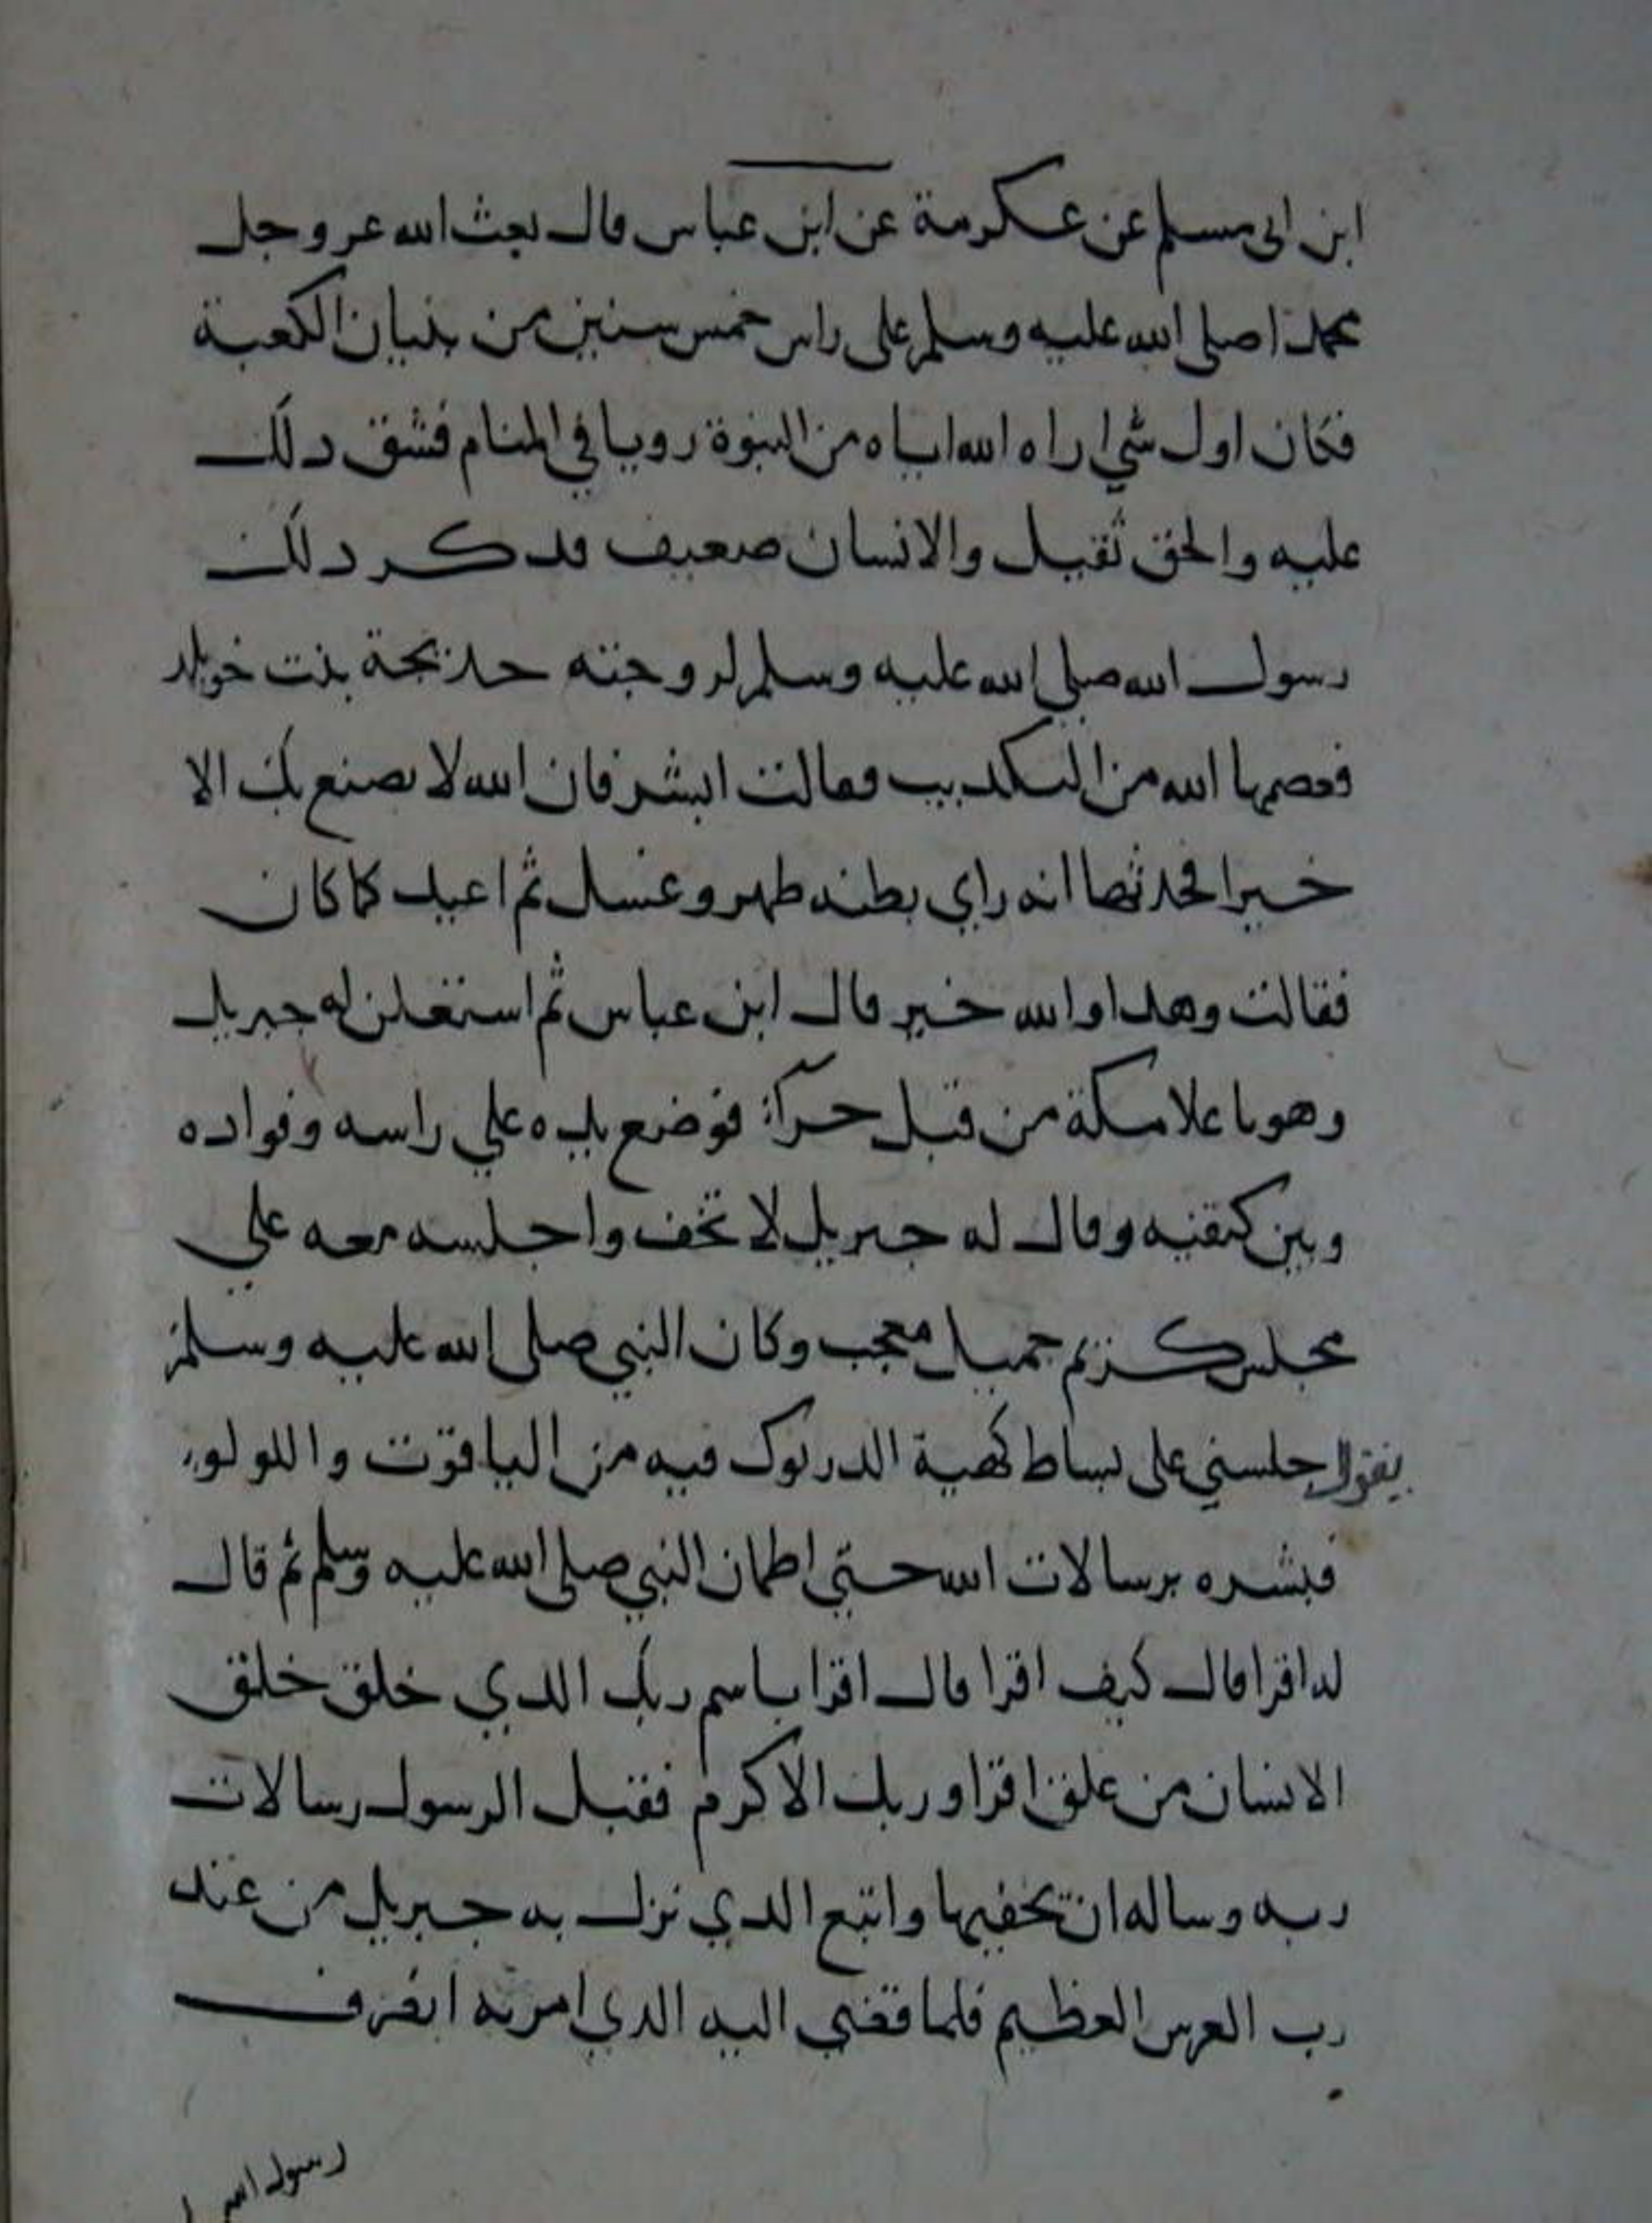 ابن ابى مسلم عن عكرمة عن ابن عباس قال بعث الله عز وجل
محمدا صلى الله عليه وسلم على راس خمس سنين من بنيان الكعبة
فكان اول شي اراه الله اياه من النبوة رويا في المنام فشق دلك
عليه والحق ثقيل والانسان ضعيف فدكر دلك
رسول الله صلى الله عليه وسلم لزوجته خديجة بنت خويلد
فعصمها الله من التكديب فقالت ابشر فان الله لا يصنع بك الا
خيرا فحدثها انه راي بطنه طهر وغسل ثم اعيد كما كان
فقالت وهدا والله خير قال ابن عباس ثم استعلن له جبريل
وهو باعلا مكة من قبل حرآء فوضع يده علي راسه وفواده
وبين كتفيه وقال له جبريل لا تخف واجلسه معه علي
مجلس كريم جميل معجب وكان النبي صلى الله عليه وسلم
يقول اجلسني على بساط كهية الدرنوك فيه من الياقوت واللولو
فبشره برسالات الله حتي اطمان النبي صلى الله عليه وسلم ثم قال
له اقرا قال كيف اقرا قال اقرا باسم ربك الدي خلق خلق
الانسان من علق اقرا وربك الاكرم فقبل الرسول رسالات
ربه وساله ان يخفيها واتبع الدي نزل به جبريل من عند
رب العرس العظيم فلما قضي اليه الدي امر به انصرف
رسول الله